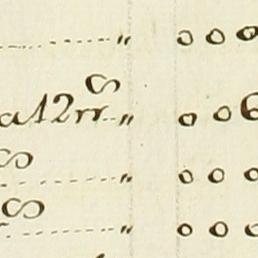 „ 0 0 0
a 12 rr.s „ 0 0 6
s „ 0 0 0
s „ 0 0 0